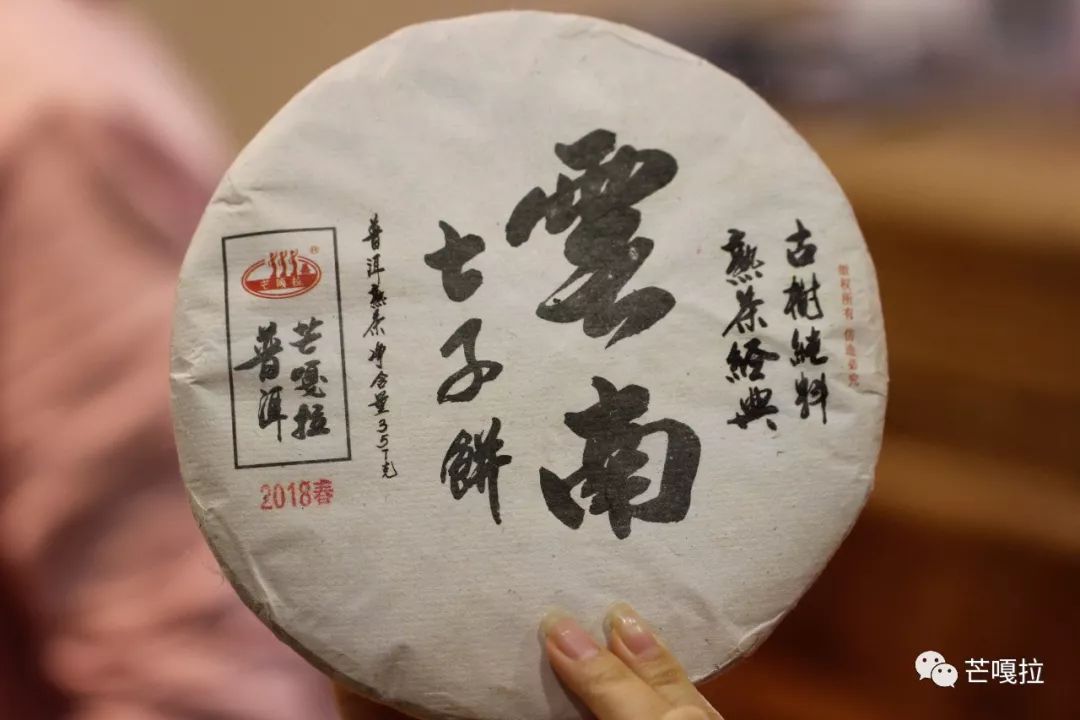 版权所有 仿造必究
古樹純料
熟茶經典
雲南
七子餅
普洱熟茶净含量357克
®
芒嘎拉
芒嘎拉
普洱
2018春
芒嘎拉